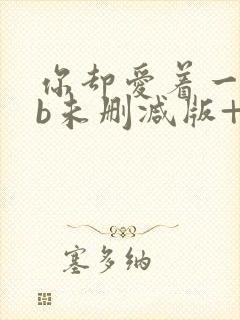 你却爱着一
b未删减版+
塞多纳